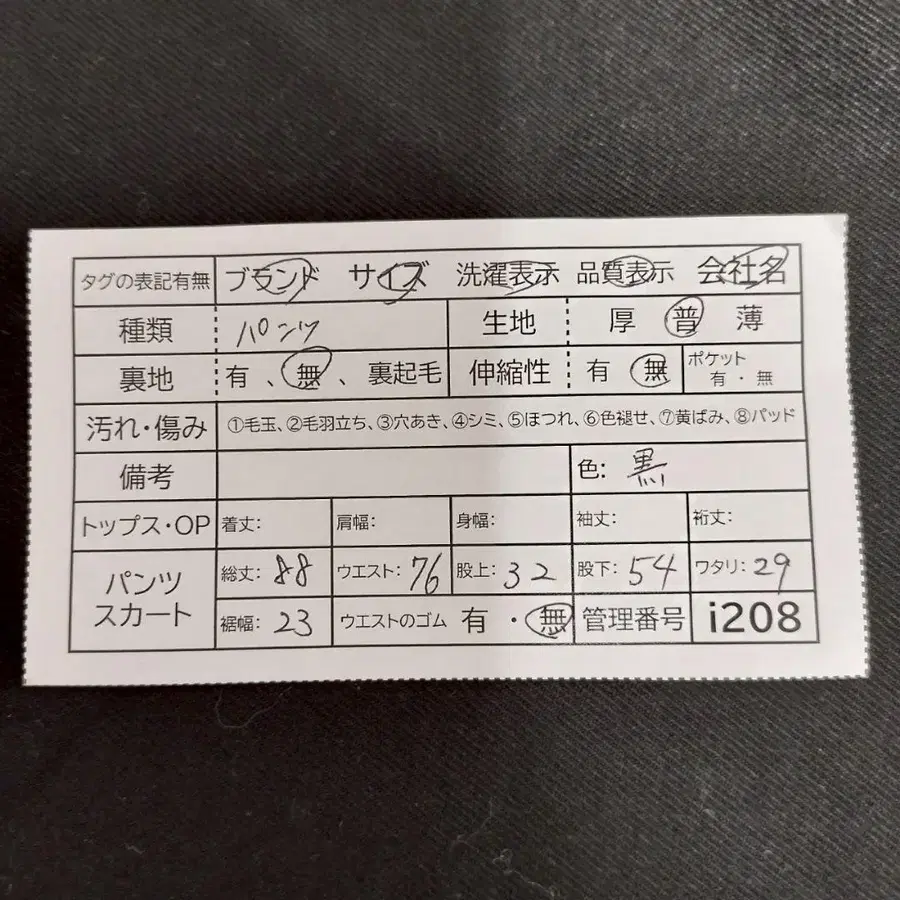 タグの表記有無 ブランド サイズ 洗濯表示 品質表示 会社名
種類 パンツ 生地 厚 普 薄
裏地 有 、 無 、 裏起毛 伸縮性 有 無 ポケット 有 ・ 無
汚れ・傷み ①毛玉、②毛羽立ち、③穴あき、④シミ、⑤ほつれ、⑥色褪せ、⑦黄ばみ、⑧パッド
備考 色: 黒
トップス・OP 着丈: 肩幅: 身幅: 袖丈: 裄丈:
パンツ スカート 総丈: 88 ウエスト: 76 股上: 32 股下: 54 ワタリ: 29
裾幅: 23 ウエストのゴム 有 ・ 無 管理番号 i208